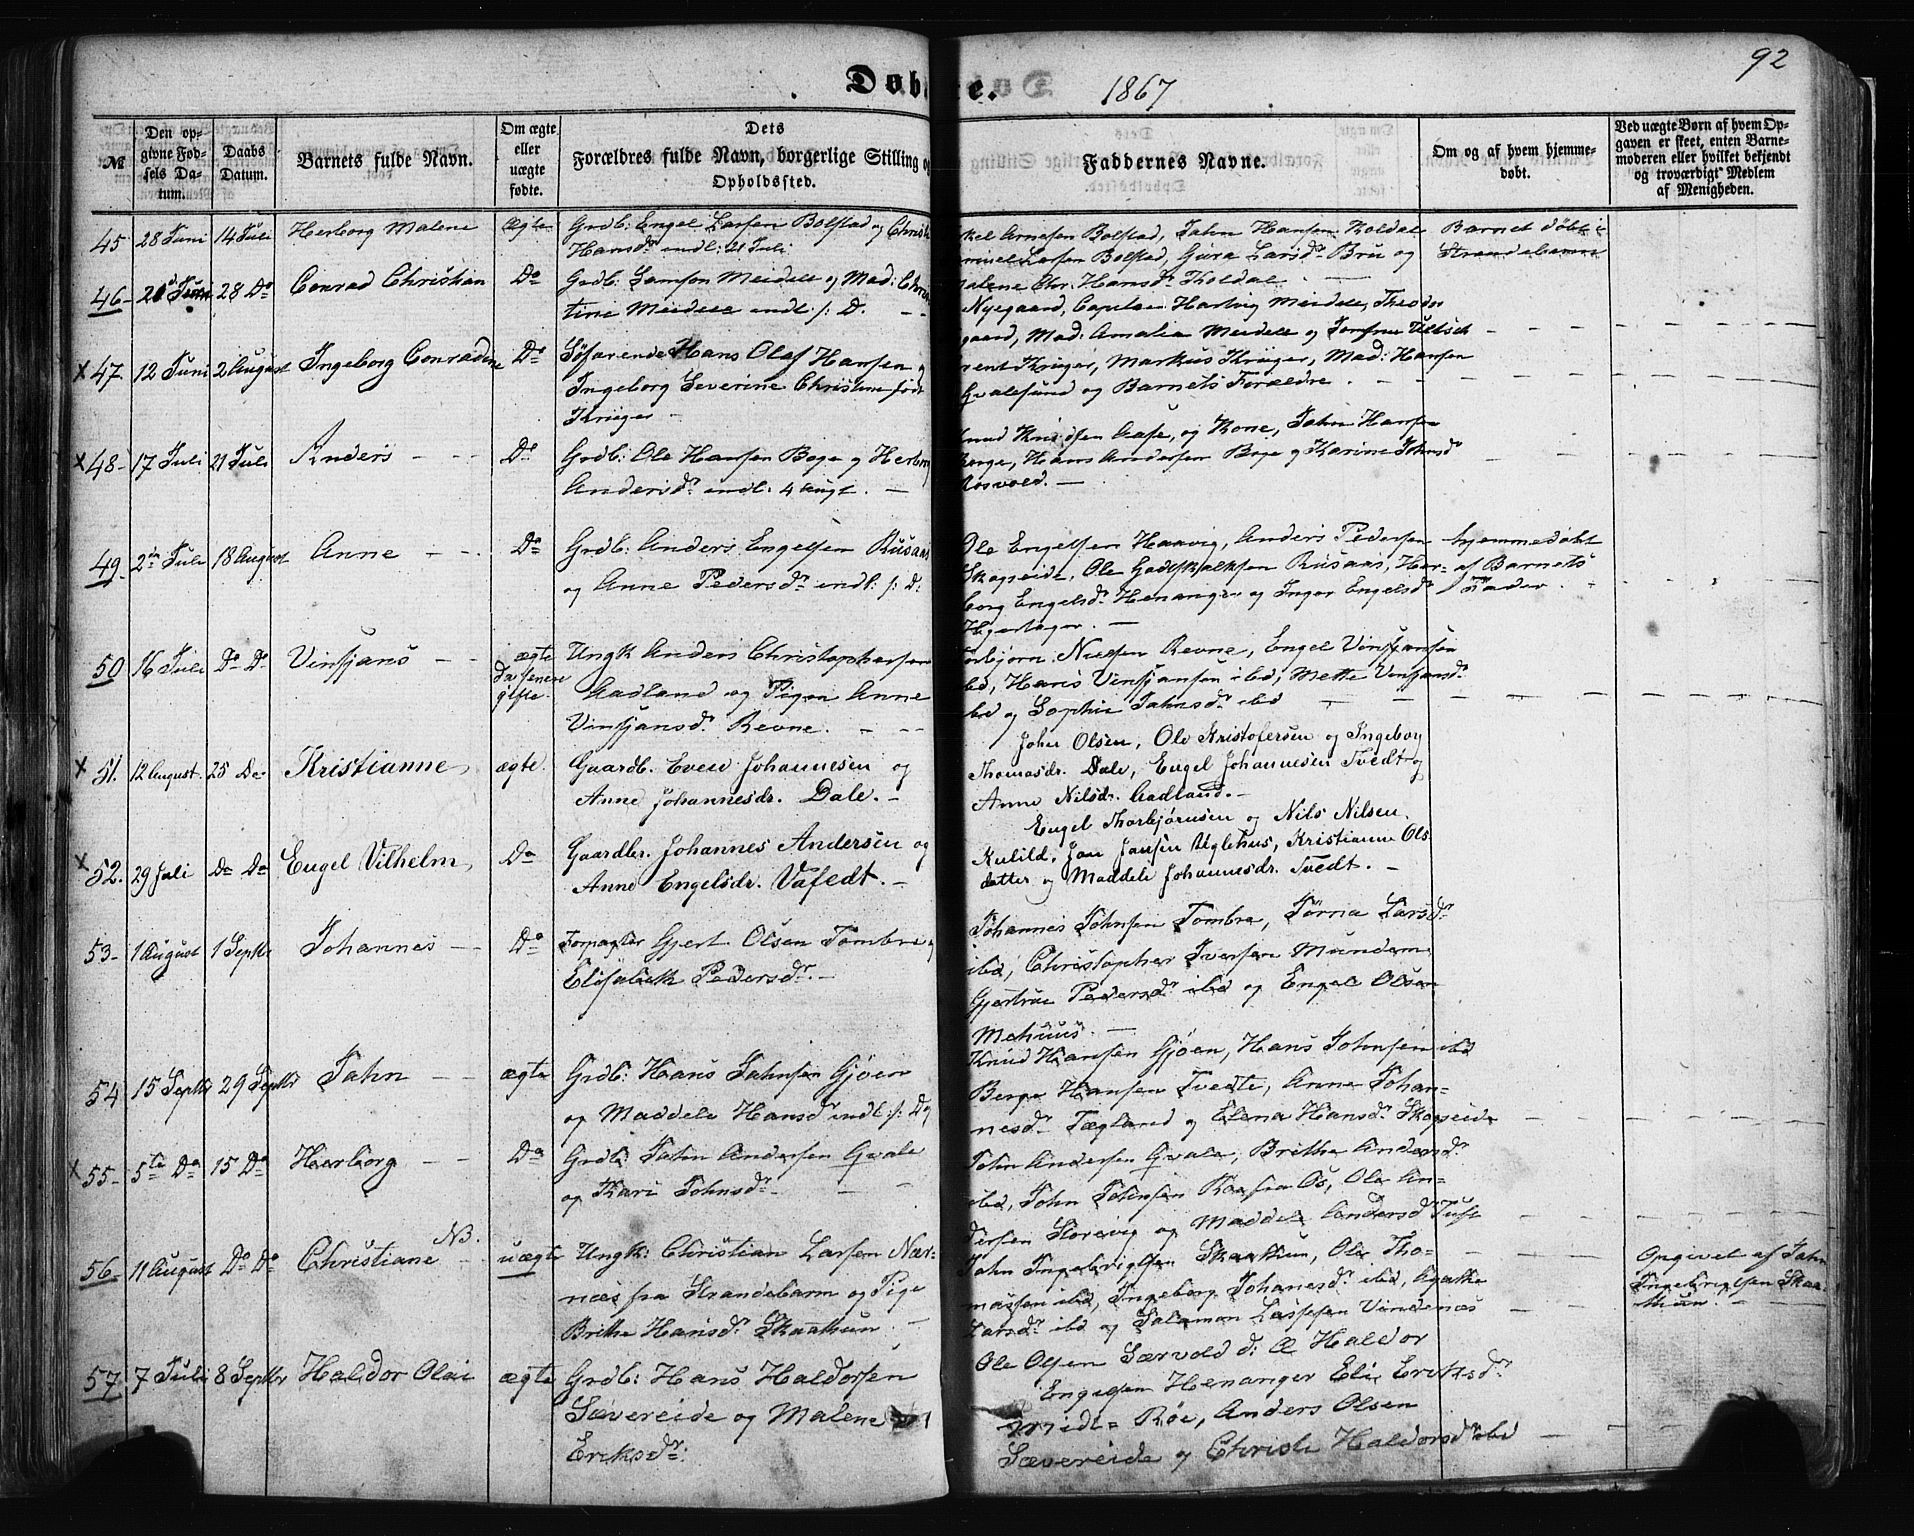 92
Døbte. 1867
№
Den opgivne Fødsels Datum.
Daabs Datum.
Barnets fulde Navn.
Om ægte eller uægte fødte.
Dets Forældres fulde Navn, borgerlige Stilling og Opholdssted.
Faddernes Navne.
Om og af hvem hjemmedøbt.
Ved uægte Børn af hvem Opgaven er skeet, enten Barnemoderen eller hvilket bekjendt og troværdigt Medlem af Menigheden.
45 28 Juni 14 Juli Herborg Malene Ægte Grdb: Engel Larsen Bolstad og Christi
Hansdr. indl: 21 Juli
Arnesen Bolstad, John Hansen Koldal
Larsen Bolstad, Gura Larsdr. Bru og
Chr. Hansdr. Koldal
Barnet døbt i
Strandebarm
46- 28 Do Conrad Christian Do Grdb: Samson Meidell og Mad: Chris
tine Meidell indl s: D.
Nyegaard, Capitain Hartvig Meidell, Theodor
gaard, Mad: Amalia Meidell og Jomfru
x 47 12 Juni 2 August Ingeborg Conradine Do Søfarende Hans Olaf Hansen og
Ingeborg Severine Christine født
Krüger -
Krüger, Markus Krüger, Mad: Hansen
Gvalesund og Barnets Forældre.
x 48- 17 Juli 21 Juli Anders - - - Do Grdb: Ole Hansen Boge og Herborg
Andersdr. indl: 4 Augt. -
Knud Knudsen Aase, og Kone, John Hansen
Berge, Hans Andersen Boge og Karine Johnsdr
Rosvold. -
49. Juli 18 August Anne - - Do Grdb: Anders Engelsen Rusaas
og Anne Pedersdr. indl: s: D:
Ole Engelsen Haavig, Anders Pedersen
Skogseide, Ole Godskalksen Rusaas, Her-
borg Engelsdr. Henanger og Inger Engelsdr
-
hjemmedøbt
af Barnets
Fader.
50 16 Juli Do Do Vinsjans - - ægte
gifte. Ungk Anders Christophersen
Aadland og Pigen Anne
Vinsjansdr. Revne. -
Torbjorn Nielsen Revne, Engel Vinsjansen
ibd, Hans Vinsjansen ibd, Mette Vinsjansdr.
ibd og Sophie Johnsdr ibd
x 51. 12 August. 25 Do Kristianne, ægte. Gaardb. Even Johannesen og
Anne Johannesdr. Dale. -
John Olsen, Ole Kristofersen og Ingeborg
Thomasdr. Dale, Engel Johannesen Tvedt og
Anne Nilsdr. Aadland. -
x 52. 29 Juli Do Do Engel Vilhelm, Do Gaardbr. Johannes Andersen og
Anne Engelsdr. Tvedt. -
Engel Thorbjørnsen og Nils Nilsen.
Kulild, Jon Jansen Uglehus, Kristianne Ols
datter og Maddele Johannesdr. Tvedt. -
53- 1 August 1 Septbr Johannes - Do Forpagter Gjert Olsen Tombre og
Elisabeth Pedersdr. -
Johannes Johnsen Tombre, Larsdr
ibd, Christopher Iversen Mundem
Gjertrue Pedersdr ibd og Engel Olsen
Mehuus. -
54 15 Septbr 29 Septbr John - - ægte Grdb: Hans Johnsen Gjøen
og Maddele Hansdr indl: s: D
Knud Hansen Gjøen, Hans Johnsen ibd
Hansen Tvedte, Anne Johan-
nesdr. Fagland og Elena Hansdr. Skogseide
x 55- 5te Do 15 Do Herborg - - Do Grdb: John Andersen Gvale
og Kari Johnsdr. - -
John Andersen Gvale, Brithe Andersdr
ibd, John Johnsen Roe fra Os, Ole An-
dersen Storevig og Maddele Andersdr Tuft
56- 11 August Do Do Christiane NB. uægte Ungk: Christian Larsen Nær-
næs fra Strandebarm og Pige
Brithe Hansdr. Skaathun. -
John Ingebrigtsen Skaathun, Ole Tho-
massen ibd, Ingeborg Johanesdr. ibd, Agathe
Larsdr ibd og Salamon Lassesen Vindenæs
Opgivet af John
Ingebrigtsen Skaa-
thun. -
57 7 Juli 8 Septbr Haldor Olai ægte Grdb: Hans Haldorsen
Sævereide og Malene
Eriksdr:
Ole Olsen Særvold d: Æ Haldor
Engelsen Henanger Eli Eriksdr.
Midt= Røe, Anders Olsen
Sævereide og Christi Haldorsdr ibd